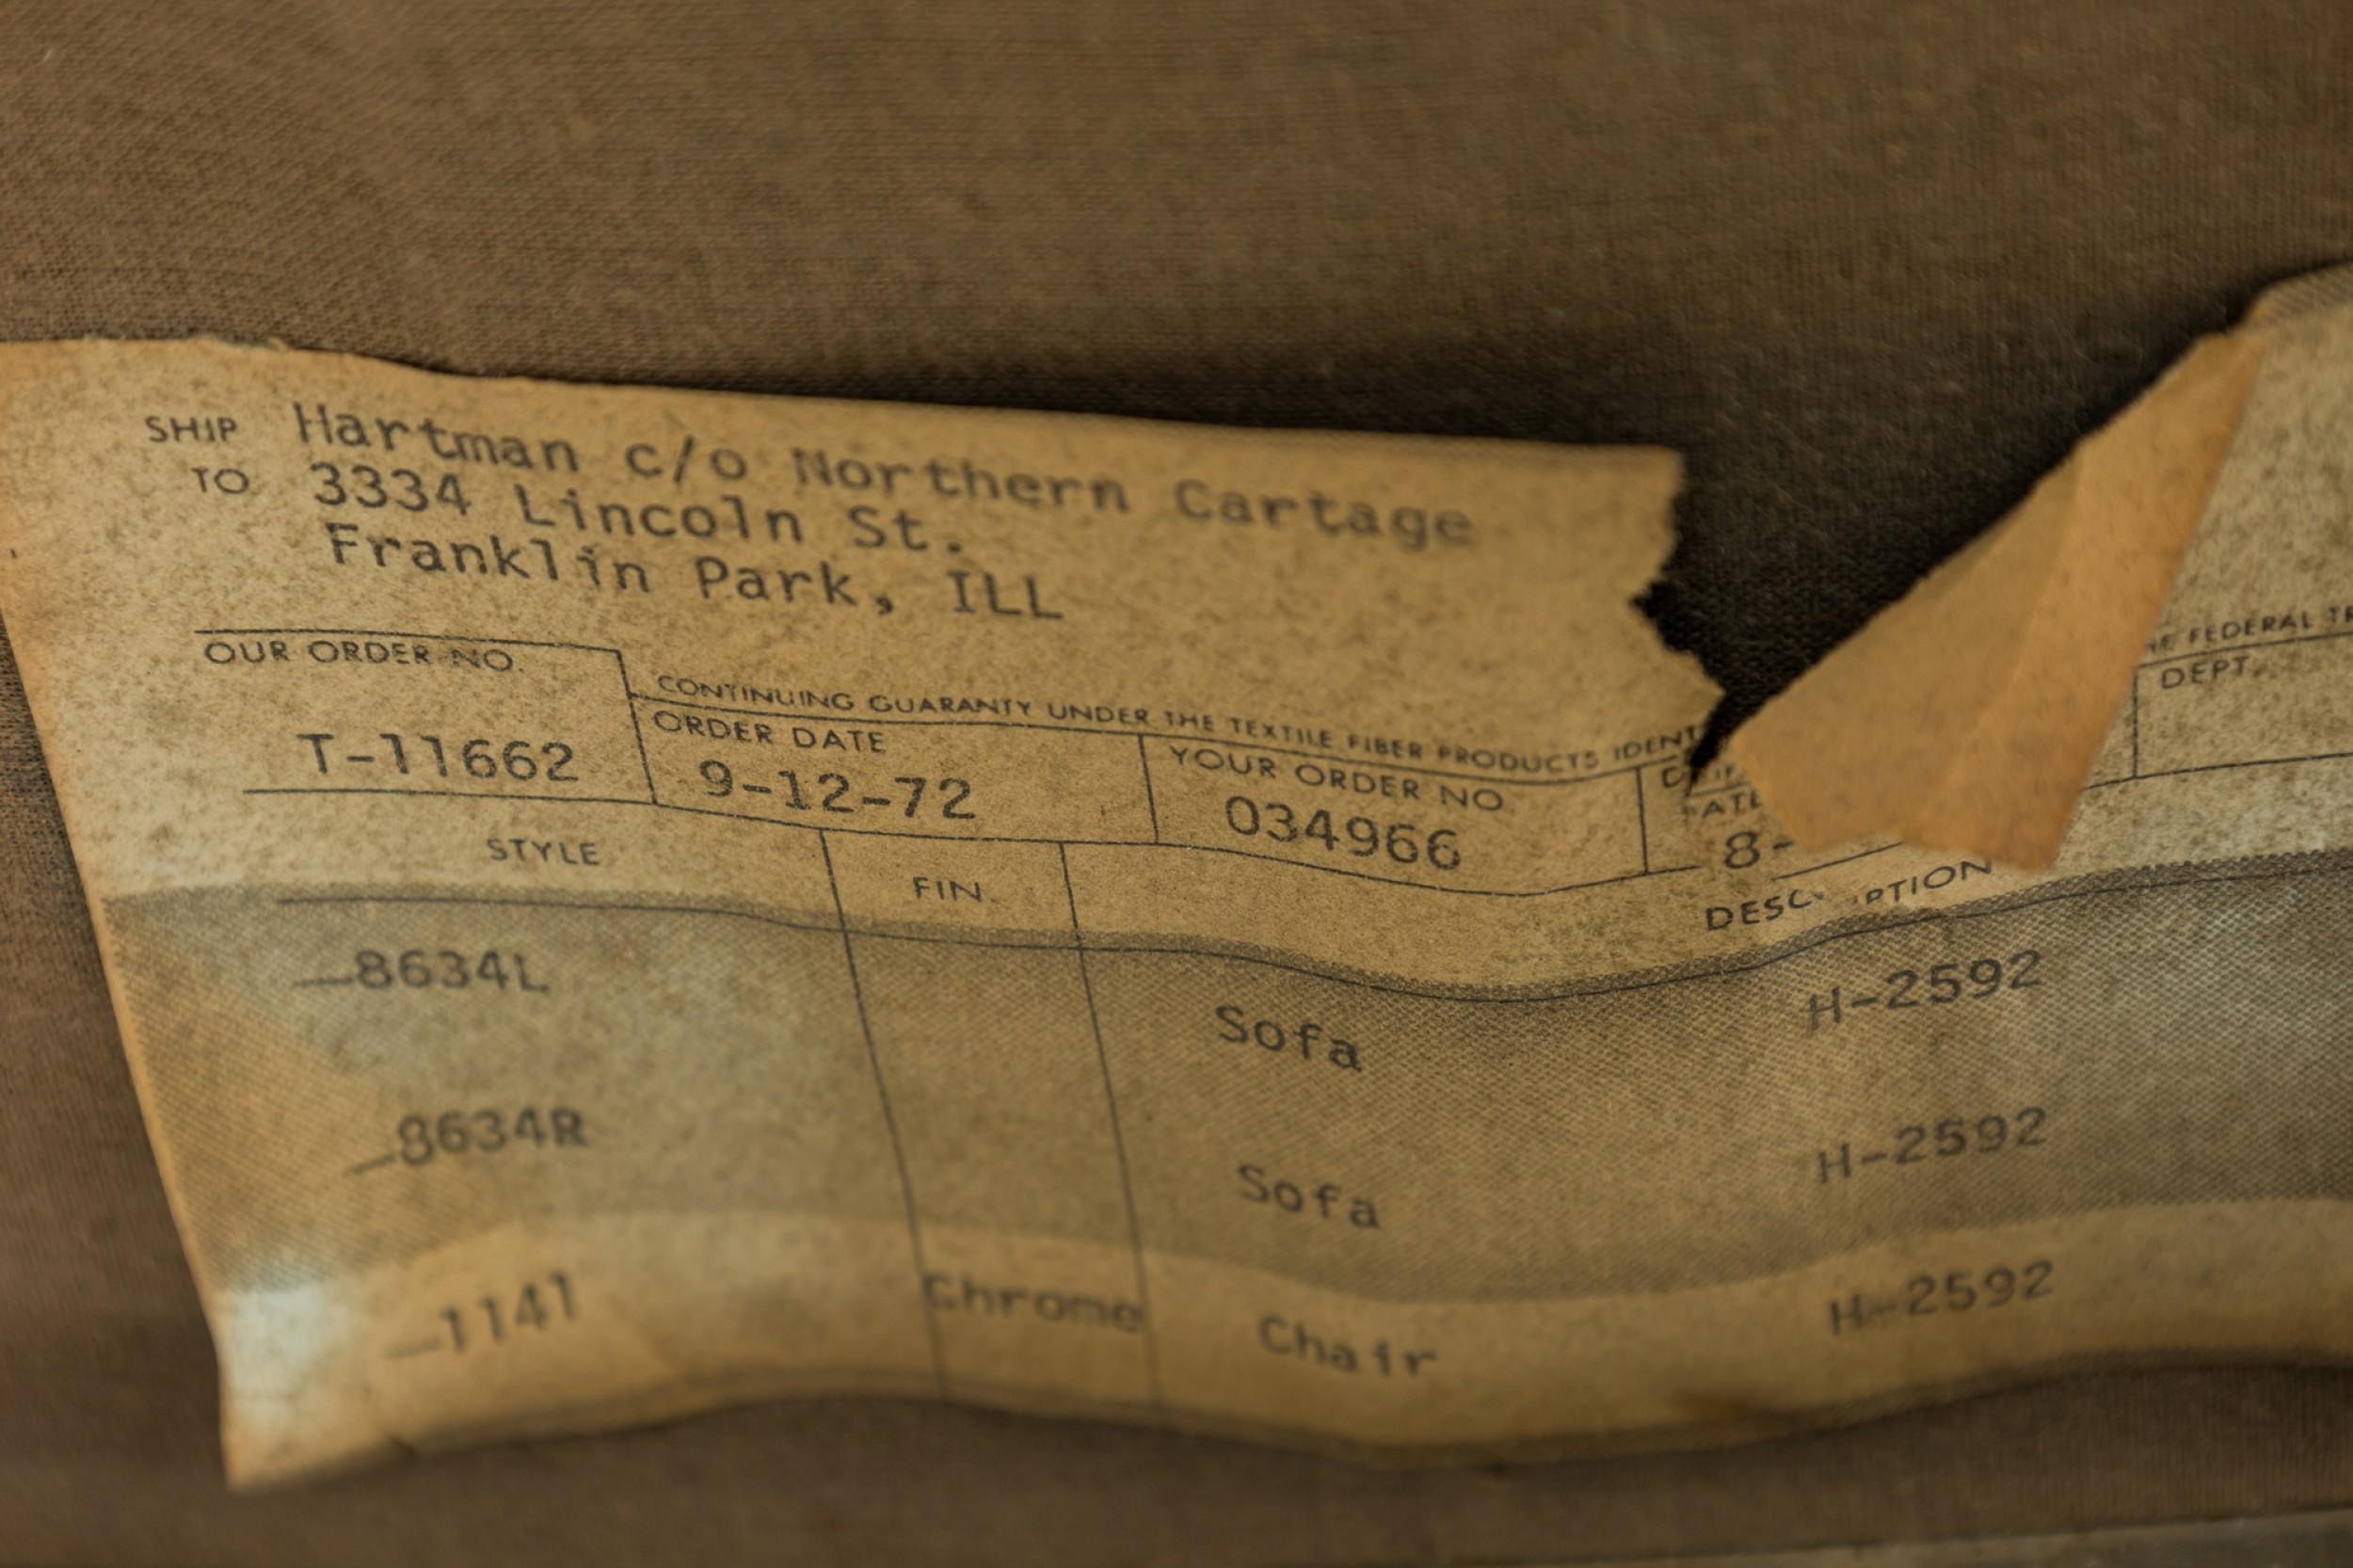 SHIP TO Hartman c/o Northern Cartage
3334 Lincoln St.
Franklin Park, ILL
CONTINUING GUARANTY UNDER THE TEXTILE FIBER PRODUCTS IDENT FEDERAL TR
OUR ORDER NO. ORDER DATE YOUR ORDER NO. DEPT.
T-11662 9-12-72 034966 8-
STYLE FIN. DESCRIPTION
8634L Sofa H-2592
8634R Sofa H-2592
1141 Chrome Chair H-2592